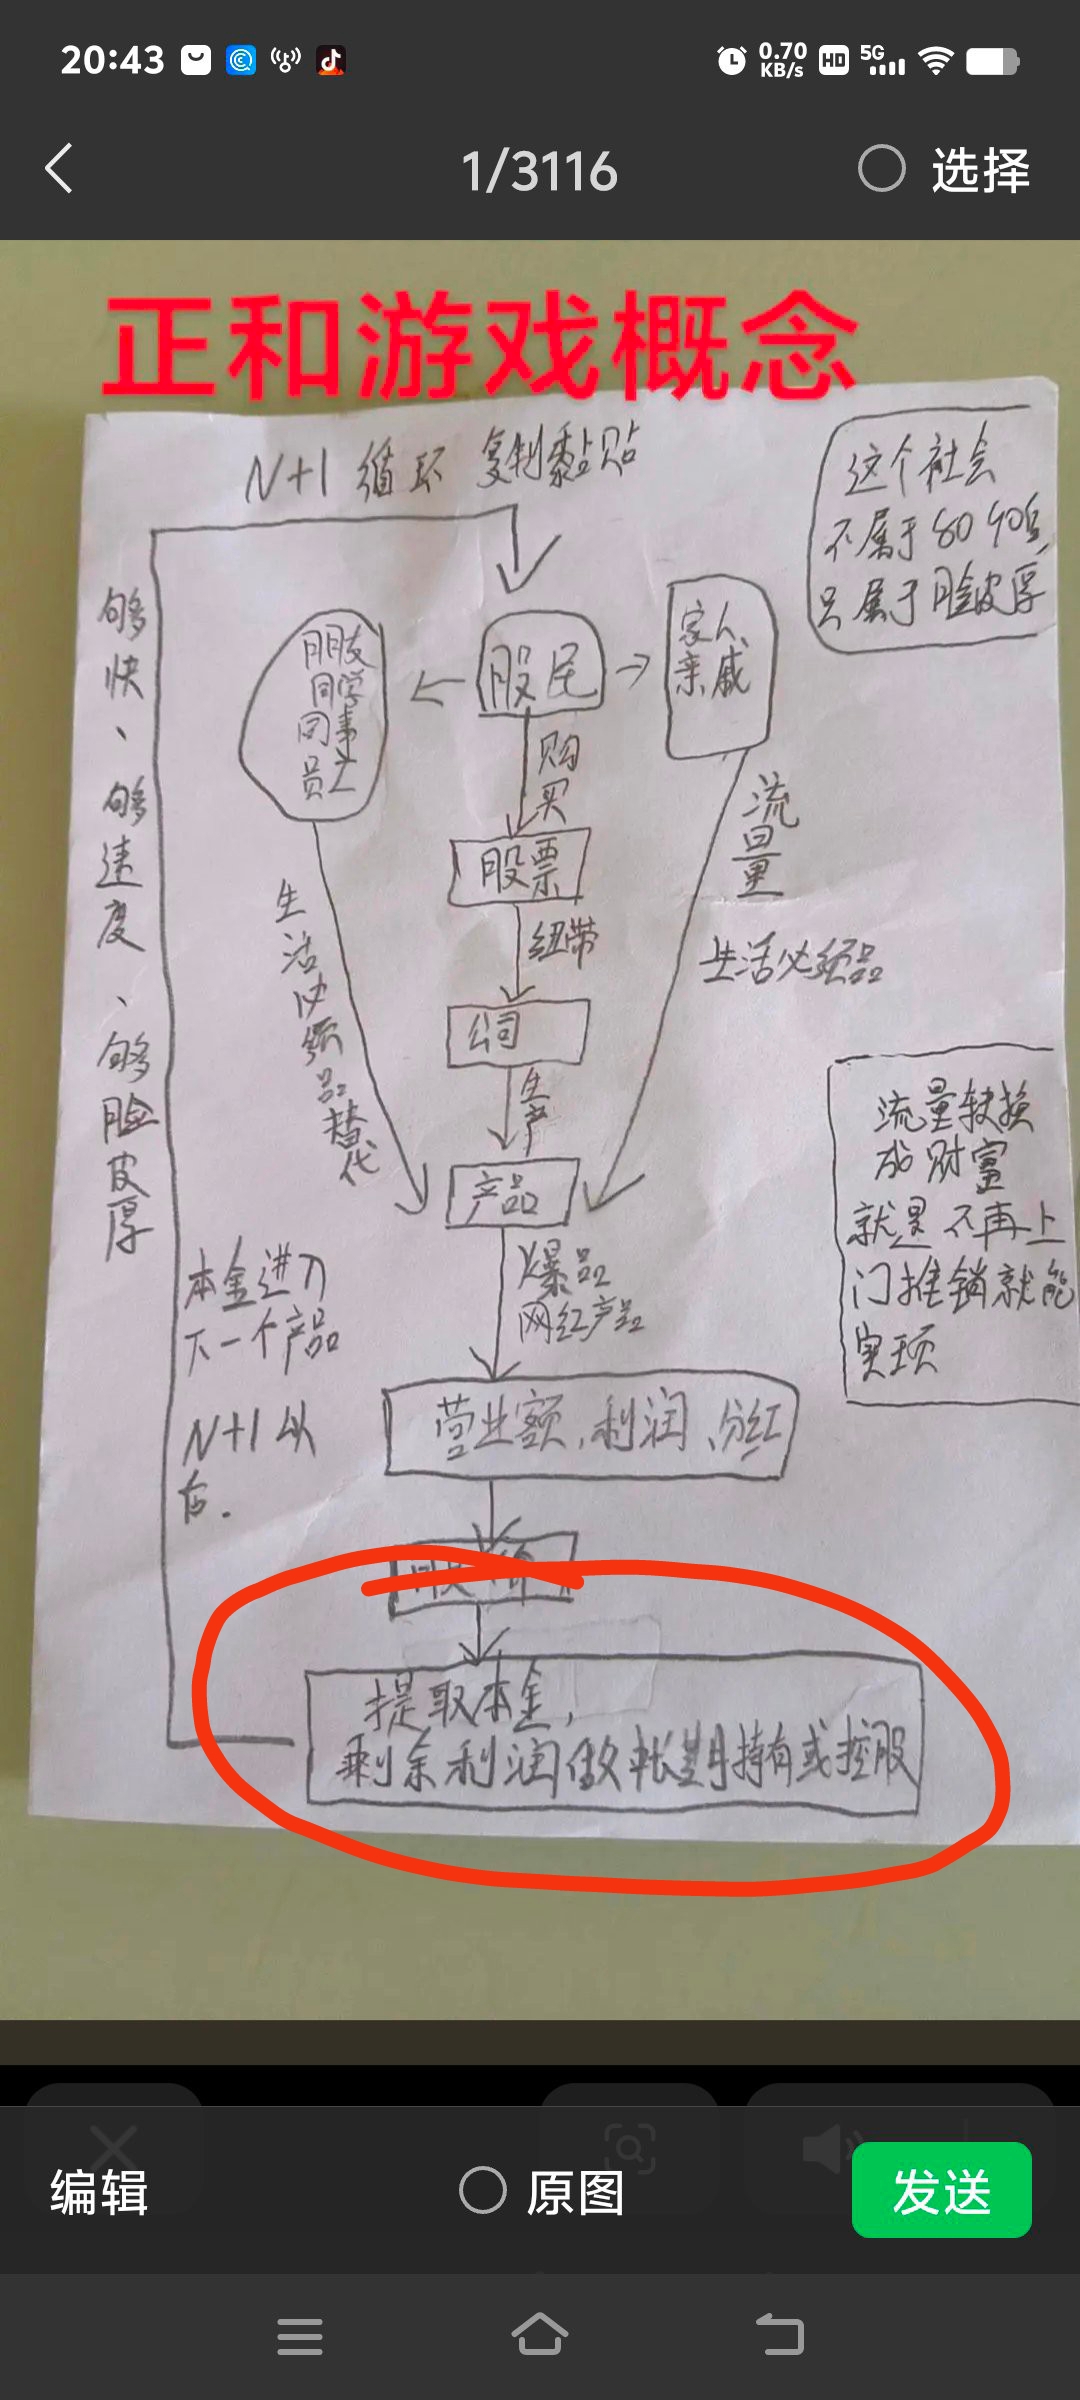 20:43
0.70
KB/s
HD
5G
1/3116
选择
正和游戏概念
N+1 循环 复制黏贴
这个社会
不属于80 90后,
只属于脸皮厚
够快、够速度、够脸皮厚
朋友
同学
同事
员工
股民
家人、
亲戚
购买
股票
纽带
流量
生活必须品替代
生活必须品
公司
生产
产品
流量转换
成财富
就是不再上
门推销就能
实现
爆品
网红产品
本金进入
下一个产品
N+1 以
后.
营业额,利润、分红
股价
提取本金,
剩余利润做长期持有或控股
编辑
原图
发送